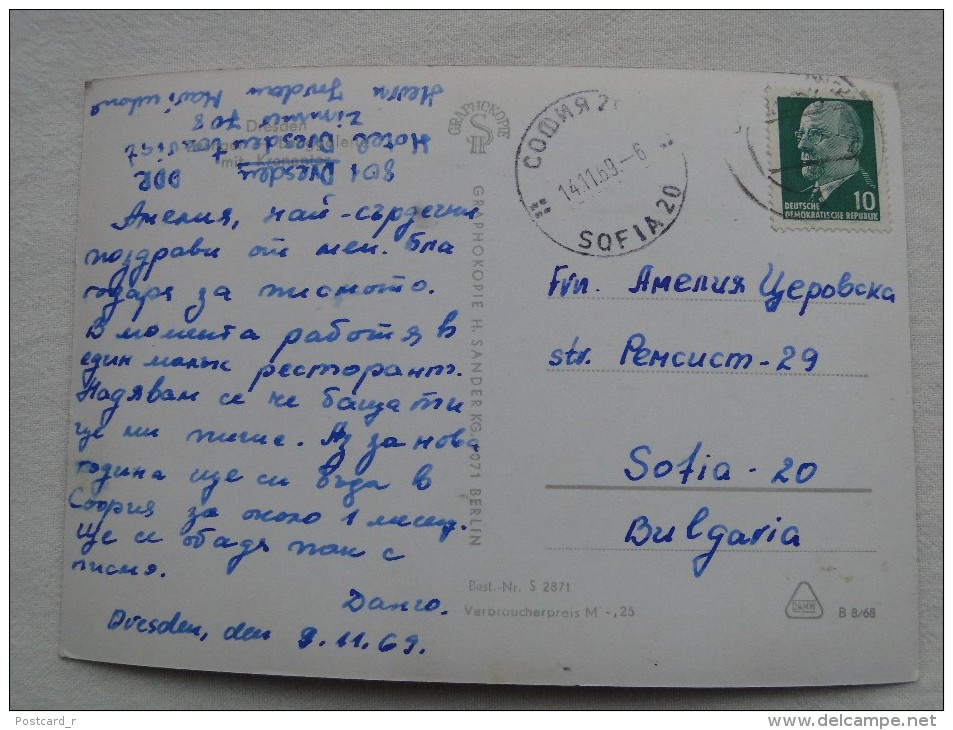 Herrn Jordan
Zimmer 708
Hotel Dresden Tourist
801 Dresden
DDR
Dresden
mit Kronentor
Амелия, най-сърдечни
поздрави от мен. Бла
годаря за писмото.
В момента работя в
един малък ресторант.
Надявам се че баща ти
ще ми пише. Аз за нова
година ще си бъда в
София за около 1 месец.
Ще се обадя пак с
писмо.
Данчо.
Dresden, den 9.11.69.
GRAPHOKOPIE
GRAPHOKOPIE H. SANDER KG, 1071 BERLIN
Best.-Nr. S 2871
Verbraucherpreis M -,25
СОФИЯ 20
14.11.69.-6
SOFIA 20
10
DEUTSCHE
DEMOKRATISCHE REPUBLIK
Frn. Амелия Церовска
str. Ремсист-29
Sofia - 20
Bulgaria
DAMW
B 8/68
Postcard_r
www.delcampe.net